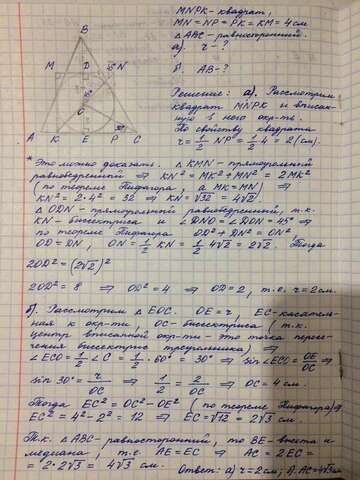 B
MNPK-квадрат,
MN = NP = PK = KM = 4 см
△ABC - равносторонний.
а). r - ?
б). AB - ?
M D N
O
A K E P C
Решение: а). Рассмотрим
квадрат MNPK и вписан-
ную в него окр-ть.
По свойству квадрата
r = 1/2 NP = 1/2 · 4 = 2 (см).
* Это можно доказать. △KMN - прямоугольный
равнобедренный ⇒ KN² = MK² + MN² = 2MK²
(по теореме Пифагора, а MK = MN) ⇒
KN² = 2·4² = 32 ⇒ KN = √32 = 4√2.
△ODN - прямоугольный равнобедренный, т.к.
KN - биссектриса и ∠DNO = ∠DON = 45° ⇒
по теореме Пифагора OD² + DN² = ON²,
OD = DN, ON = 1/2 KN = 1/2 4√2 = 2√2. Тогда
2OD² = (2√2)²
2OD² = 8 ⇒ OD² = 4 ⇒ OD = 2, т.е. r = 2см.
б). Рассмотрим △EOC. OE = r, EC - касатель-
ная к окр-ти, OC - биссектриса (т.к.
центр вписанной окр-ти - это точка пересе-
чения биссектрис треугольника) ⇒
∠ECO = 1/2 ∠C = 1/2 · 60° = 30° ⇒ sin∠ECO = OE/OC ⇒
sin 30° = r/OC ⇒ 1/2 = 2/OC ⇒ OC = 4 см.
Тогда EC² = OC² - OE² (по теореме Пифагора) ⇒
EC² = 4² - 2² = 12 ⇒ EC = √12 = 2√3 см.
Т.к. △ABC - равносторонний, то BE - высота и
медиана, т.е. AE = EC ⇒ AC = 2EC =
= 2·2√3 = 4√3 см. Ответ: а) r = 2см; б). AC = 4√3 см